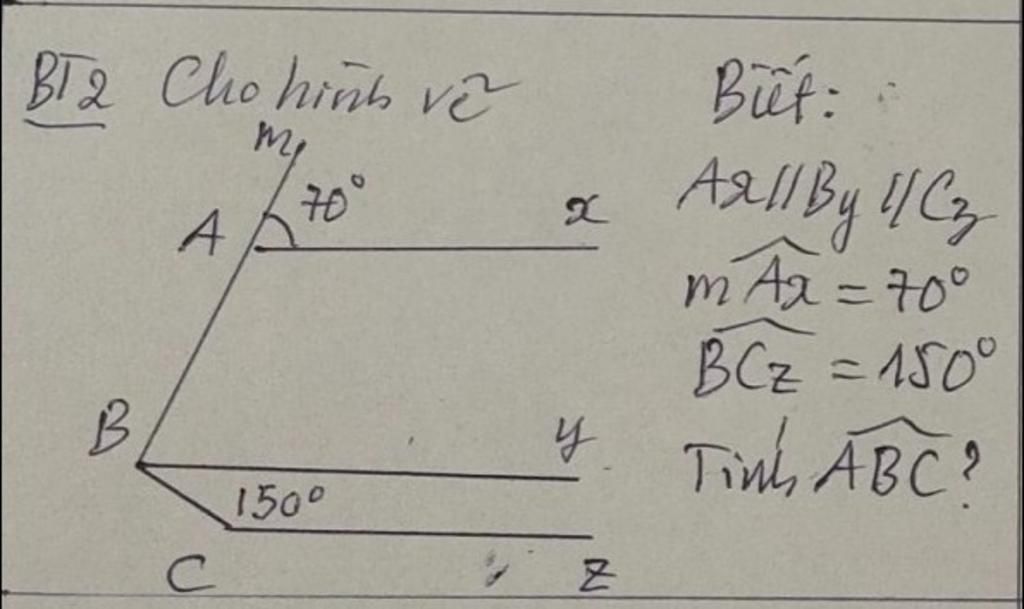 BT2 Cho hình vẽ
m
70°
A
x
B
y
150°
C
z
Biết:
Ax//By//Cz
mAx = 70°
BCz = 150°
Tính ABC?